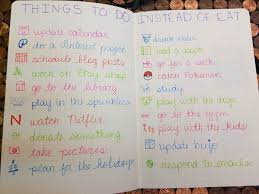 THINGS TO DO INSTEAD OF EAT
update calendar
do a Pinterest project
schedule blog posts
work on Etsy shop
go to the library
play in the sprinklers
watch Netflix
donate something
take pictures
plan for the holidays
drink water
read a book
go for a walk
catch Pokemon
study
play with the dogs
go to the gym
play with the kids
update bujo
respond to emails